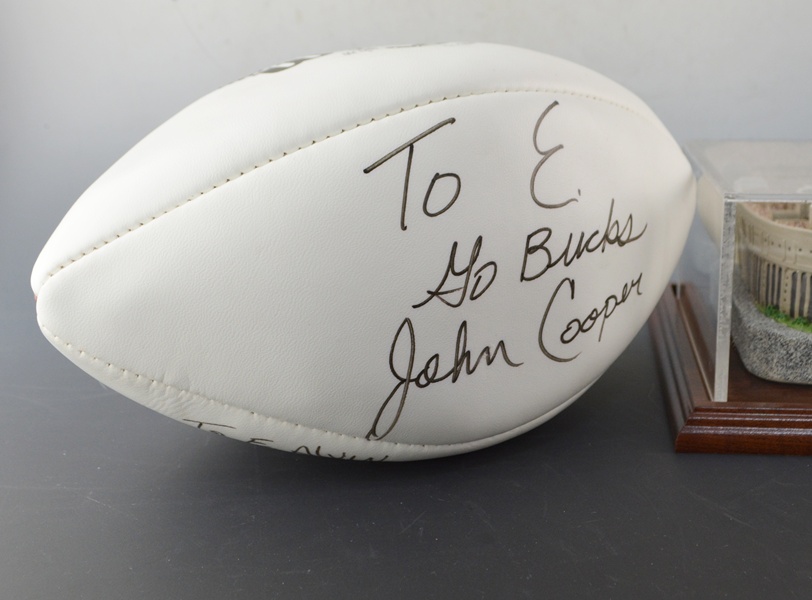 To E.
Go Bucks
John Cooper
To E